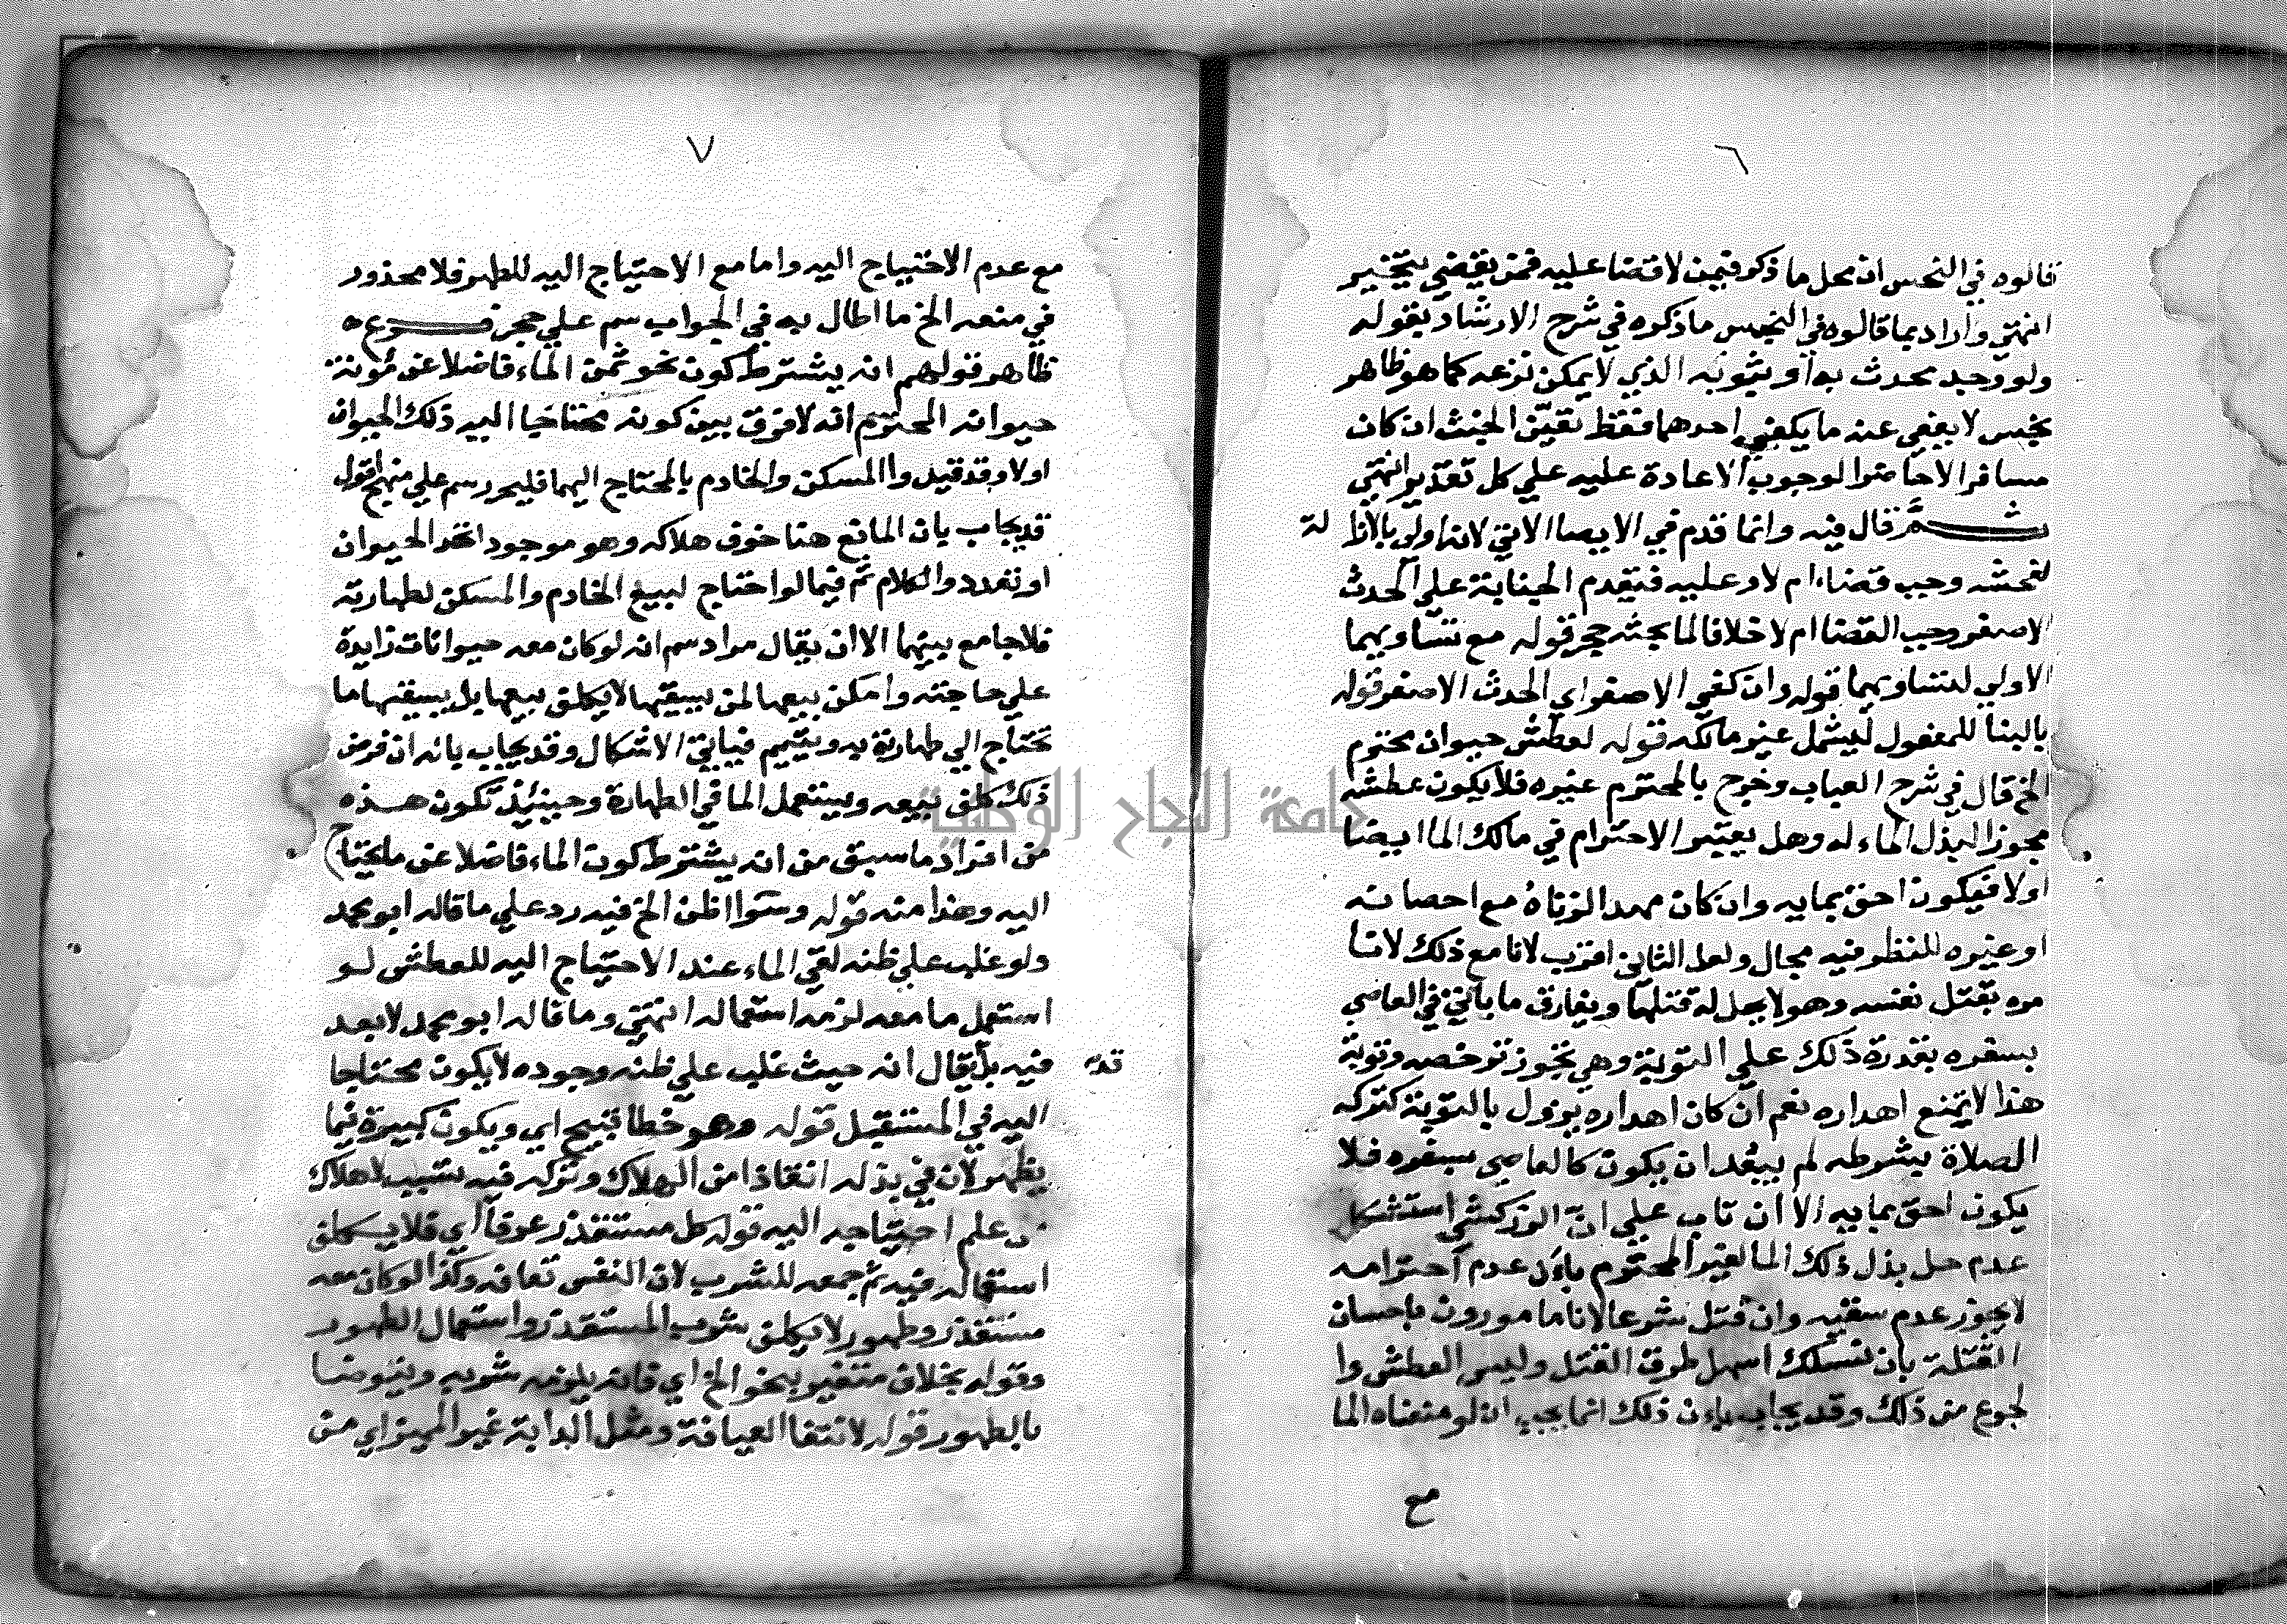 ٦
قالوه في النجس ان محل ما ذكر فيمن لا قضا عليه فمن يقضي يتخير
انتهي واراد بما قالوه في النجس ما ذكره في شرح الارشاد بقوله
ولو وجد محدث به او بثوبه الذي لا يمكن نزعه كما هو ظاهر
نجس لا يعفي عنه ما يكفي احدهما فقط تعين الخبث ان كان
مسافرا لا حاضرا لوجوب الاعادة عليه علي كل تقدير انتهي
ثم قال فيه وانما قدم في الايصا الاتي لانه اولي بالازا له
لفحشه وجب قضاء ام لا وعليه فتقدم الجنابة علي الحدث
الاصغر وجب القضا ام لا خلافا لما بحثه حجر قوله مع تساويهما
الاولي لتساويهما قوله وان كفي الاصغر اي الحدث الاصغر قوله
بالبنا للمفعول ليشمل غير مالكه قوله لعطش حيوان محترم
الخ قال في شرح العباب وخرج بالمحترم غيره فلا يكون عطشه
مجوزا لبذل الماء له وهل يعتبر الاحترام في مالك الما ايضا
اولا فيكون احق بمايه وان كان مهدرا لزناه مع احصانه
او غيره للنظر فيه مجال ولعل الثاني اقرب لانا مع ذلك لانا
مره بقتل نفسه وهو لا يحل له قتلها ويفارق ما ياتي في العاصي
بسفره بقدرة ذلك علي التوبة وهي تجوز ترخصه وتوبة
هذا لا تمنع اهداره نعم ان كان اهداره يزول بالتوبة كتركه
الصلاة بشرطه لم يبعد ان يكون كالعاصي بسفره فلا
يكون احق بمايه الا ان تاب علي ان الزركشي استشكل
عدم حل بذل ذلك الما لغير المحترم بان عدم احترامه
لا يجوز عدم سقيه وان قتل شرعا لانا مامورون باحسان
القتلة بان نسلك اسهل طرق القتل وليس العطش وا
لجوع من ذلك وقد يجاب بان ذلك انما يجب ان لو منعناه الما
مع
٧
مع عدم الاحتياج اليه واما مع الاحتياج اليه للطهر فلا محذور
في منعه الخ ما اطال به في الجواب سم علي حجر فرع
ظاهر قولهم انه يشترط كون نحو ثمن الماء فاضلا عن مؤنة
حيوانه المحترم انه لا فرق بين كونه محتاجا اليه ذلك الحيوان
اولا وقد قيل والمسكن والخادم بالمحتاج اليهما فليحرر سم علي منهج اقول
قد يجاب بان المانع هنا خوف هلاكه وهو موجود اتحد الحيوان
او تعدد والكلام ثم فيما لو احتاج لبيع الخادم والمسكن لطهارته
فلا جامع بينهما الا ان يقال مراد سم انه لو كان معه حيوانات زايدة
علي حاجته وامكن بيعها لمن يسقيها لا يكلف بيعها بل يسقيها ما
تحتاج الي طهارته به ويتيمم فياتي الاشكال وقد يجاب بانه ان فرض
ذلك كلف بيعه ويستعمل الما في الطهارة وحينئذ تكون هذه
من افراد ما سبق من انه يشترط كون الماء فاضلا عن ما يحتاج
اليه وهذا منه قوله وسوا ظن الخ فيه رد علي ما قاله ابو محمد
ولو غلب علي ظنه لقي الماء عند الاحتياج اليه للعطش لو
استعمل ما معه لزمه استعماله انتهي وما قاله ابو محمد لا بعد
فيه بل قد يقال انه حيث غلب علي ظنه وجوده لا يكون محتاجا
اليه في المستقبل قوله وهو خطا قبيح اي ويكون كبيرة فيما
يظهر لان في بذله انقاذا من الهلاك وتركه فيه تسبب لاهلاك
من علم احتياجه اليه قوله كل مستقذر عرفا اي فلا يكلف
استعماله فيه ثم جمعه للشرب لان النفس تعافه وكذا لو كان معه
مستقذر وطهور لا يكلف شرب المستقذر واستعمال الطهور
وقوله بخلاف متغير بنحو الخ اي فانه يلزمه شربه ويتوضا
بالطهور قوله لانتفا العيافة ومثل الدابة غير المميز اي من
جامعة النجاح الوطنية